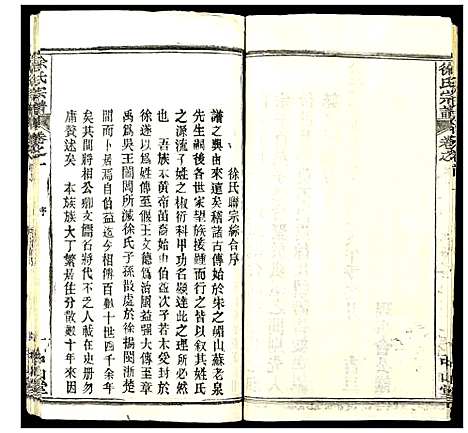 徐氏宗譜
卷之首
中山堂
徐氏聯宗綜合序
譜之興由來遠矣稽諸古傳始於朱之硘山蘇老泉
先生嗣後各世家望族接踵而行之皆以敘其姓氏
之源流子姓之椒衍科甲功名顯達此之理所必然
也吾族本黃帝苗裔伯益公若木受封於
徐遂以為姓傳至偃王文德為治國益强大傳至章
禹為吳王闔閭所滅徐氏子孫散處於徐揚閩浙之
間而居自伯益迄今相傳百有十世四千餘年
矣其間將相文儒名將代不乏人載在史册勿
庸贅述矣本族族大丁繁居住分散觀十年來因
徐氏宗譜
卷之一
序
一
中山堂